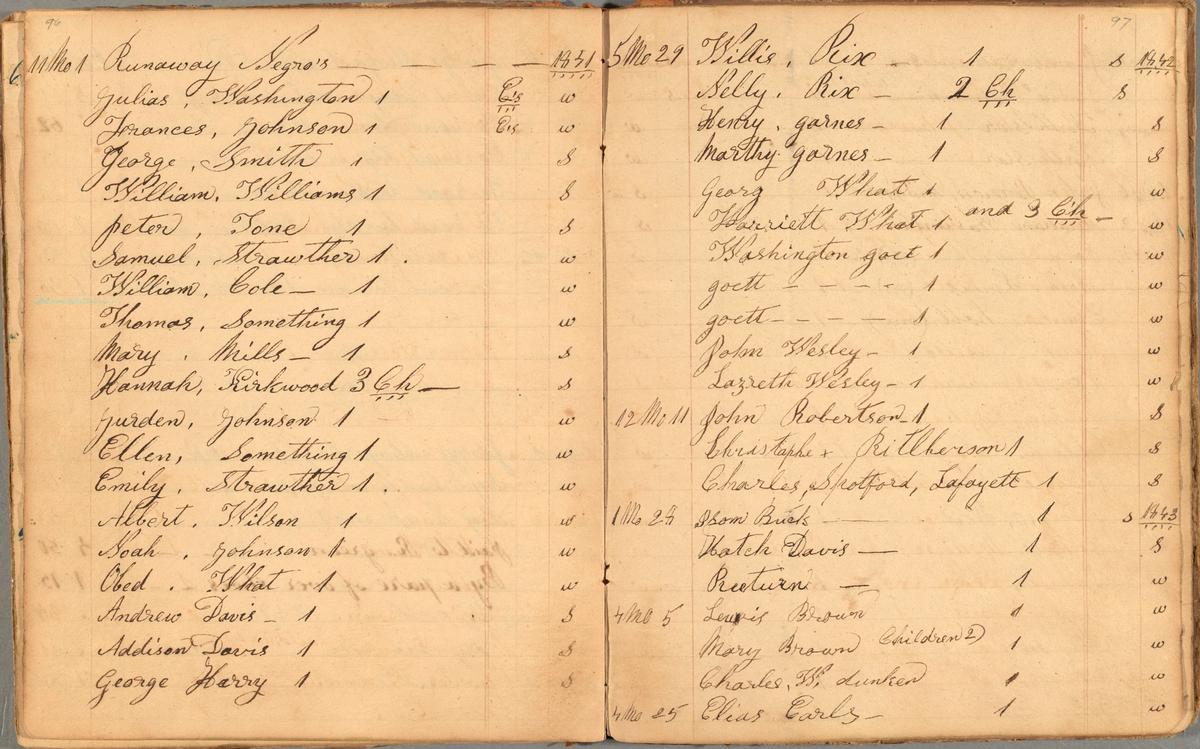 96
6 11 Mo 1 Runaway Negro's — — — — 1851
Julias, Washington 1 Cis w
Frances, Johnson 1 Cis w
George, Smith 1 s
William, Williams 1 s
Peter, Tone 1 s
Samuel, Strawther 1 . w
William, Cole — 1 w
Thomas, Something 1 w
Mary, Mills — 1 s
Hannah, Kirkwood 3 Ch — s
Jurden, Johnson 1 w
Ellen, Something 1 w
Emily, Strawther 1 . w
Albert, Wilson 1 w
Noah, Johnson 1 w
Obed . What 1 w
Andrew Davis - 1 s
Addison Davis 1 s
George Harry 1 s
97
5 Mo 29 Willis, Rix — 1 s 1842
Nelly, Rix — 2 Ch s
Henry, garnes — 1 s
Marthy garnes — 1 s
Georg What 1 w
Harriett What 1 and 3 Ch — w
Washington goet 1 w
goett — — — — 1 w
goett — — — 1 w
John Wesley — 1 w
Lazreth Wesley — 1 w
12 Mo 11 John Robertson — 1 s
Christophe + Ritlherson 1 s
Charles, Spotford, Lafayett 1 s
1 Mo 24 Isom Buck — 1 s 1843
Hatch Davis — 1 s
Reeturn — 1 w
4 Mo 5 Lewis Brown 1 w
Mary Brown Children 2) 1 w
Charles, W. dunken 1 w
4 Mo 25 Elias Earls — 1 w